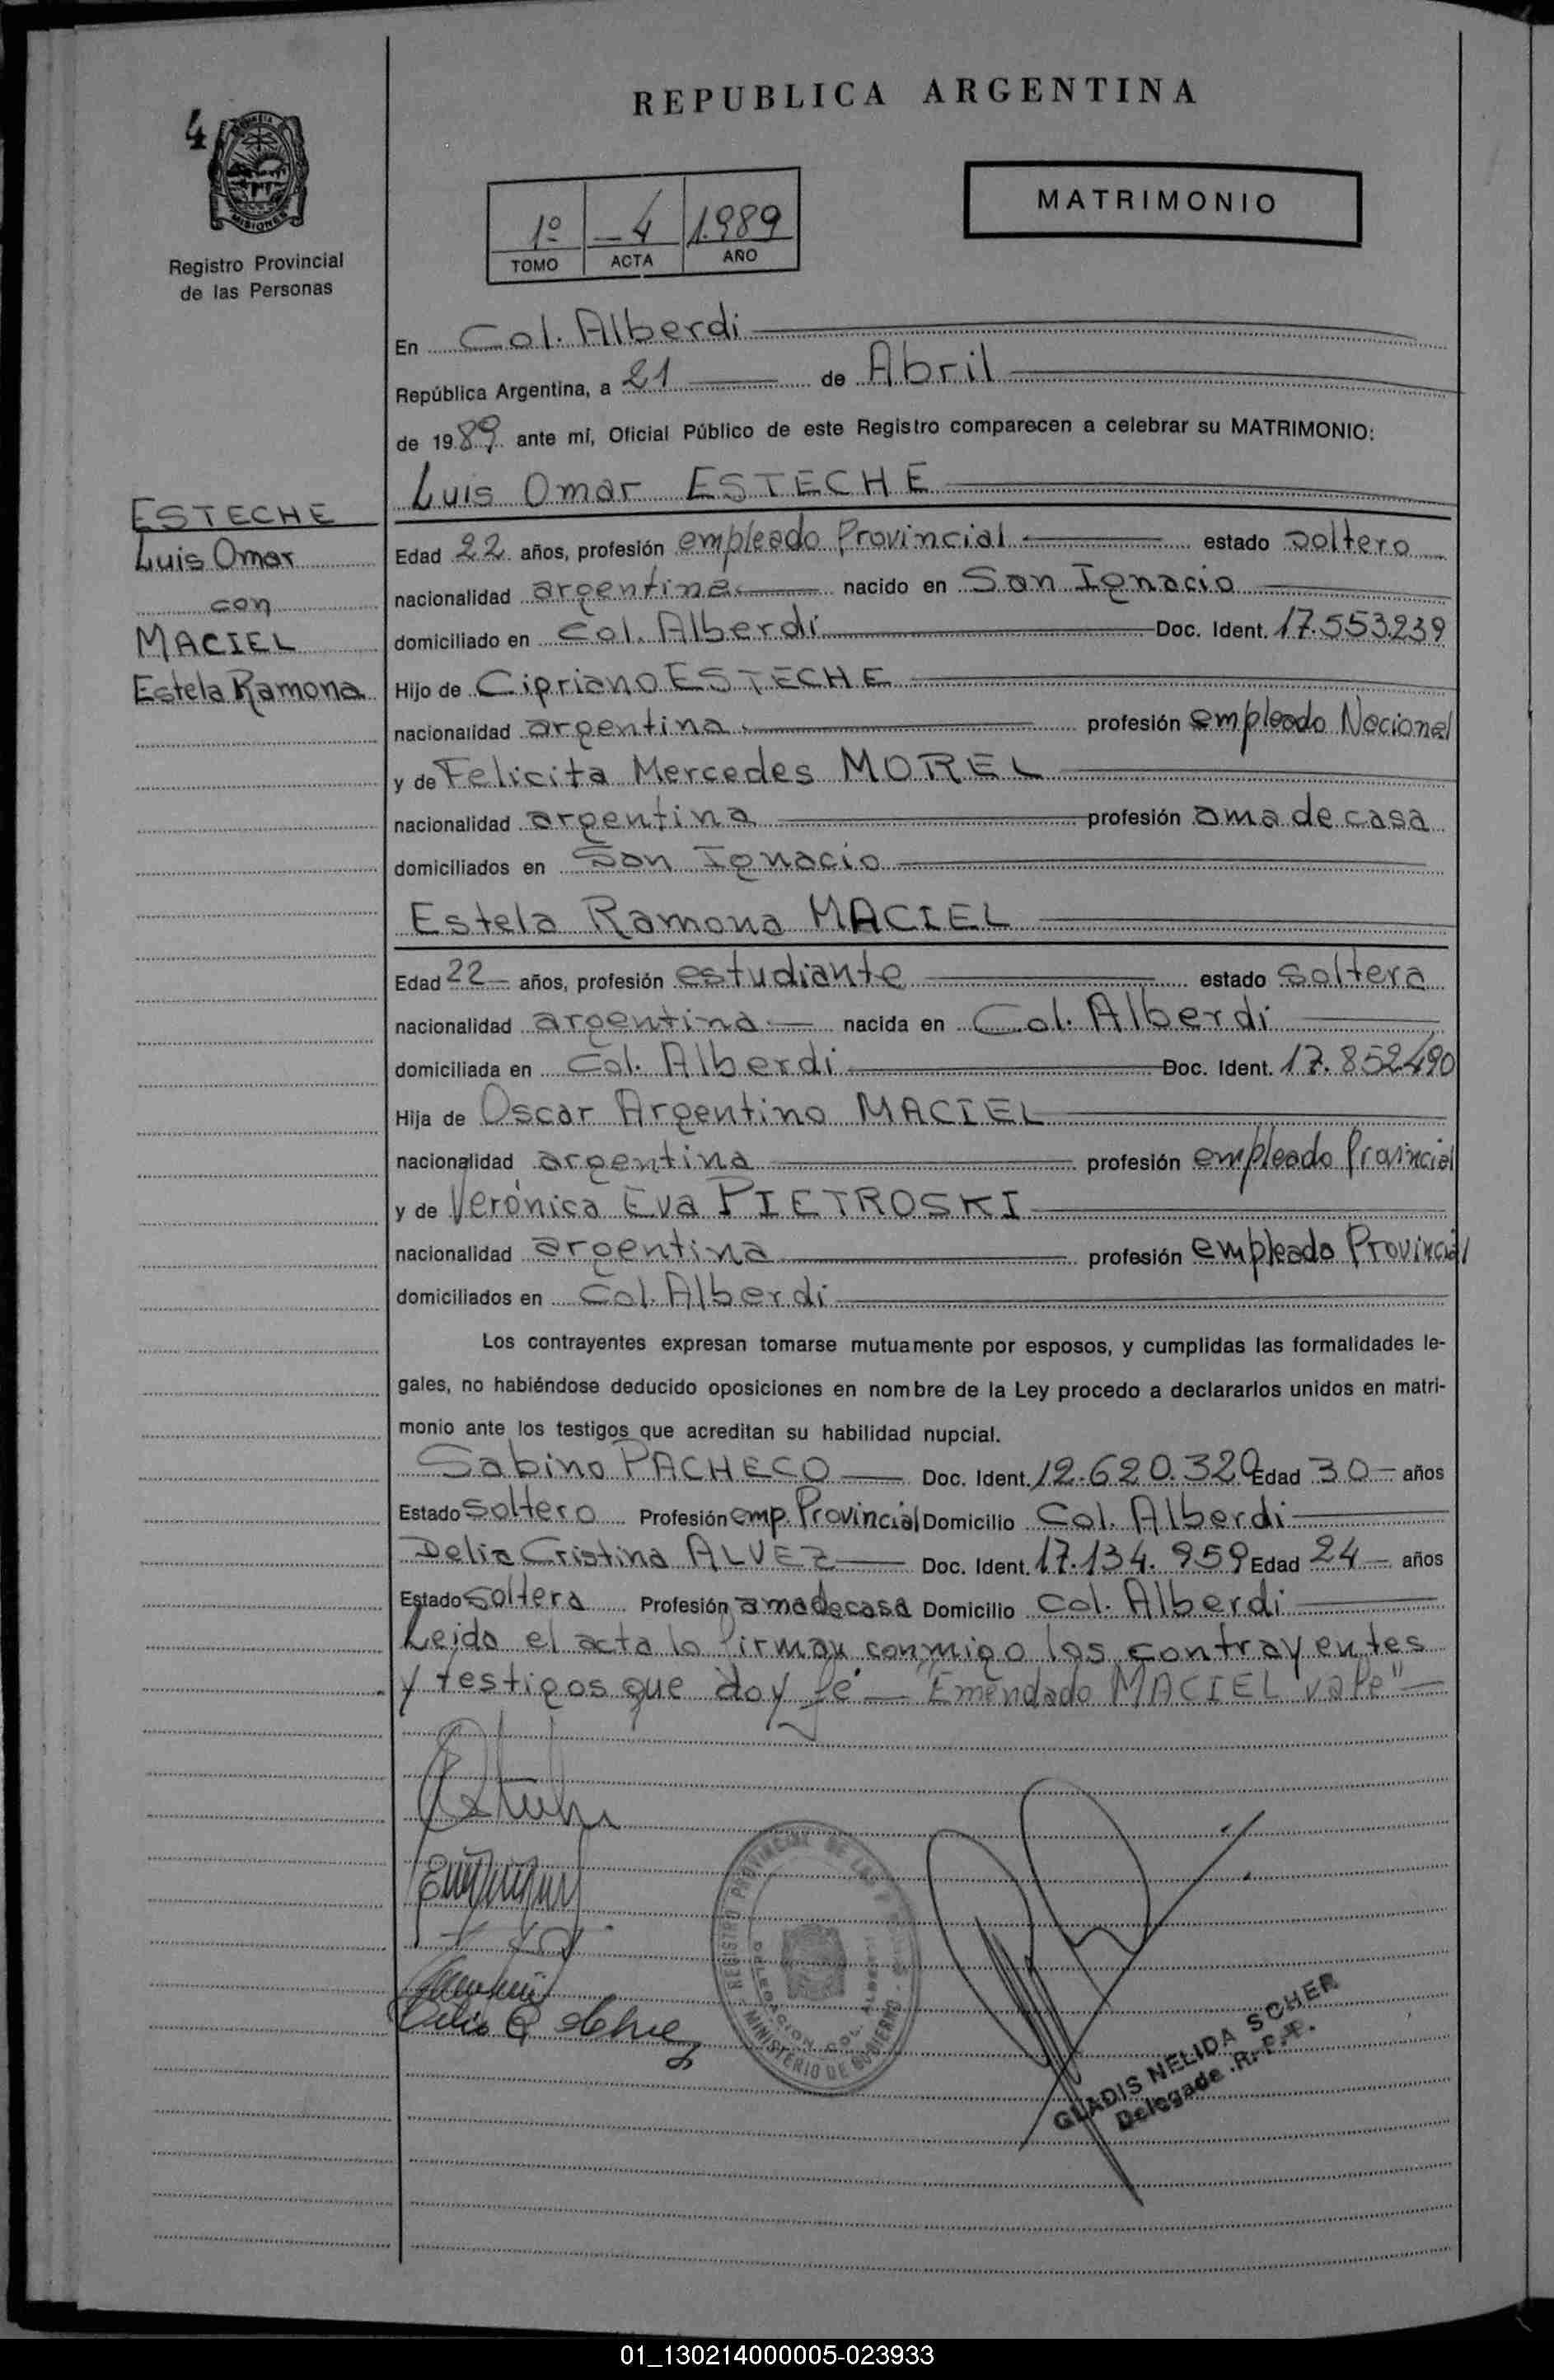 REPUBLICA ARGENTINA
4
MISIONES
Registro Provincial
de las Personas
1º - 4 1.989
TOMO ACTA AÑO
MATRIMONIO
En Col. Alberdi
República Argentina, a 21 de Abril
de 1989 ante mí, Oficial Público de este Registro comparecen a celebrar su MATRIMONIO:
ESTECHE
Luis Omar
con
MACIEL
Estela Ramona
Luis Omar ESTECHE
Edad 22 años, profesión empleado Provincial estado soltero
nacionalidad argentina nacido en San Ignacio
domiciliado en Col. Alberdi Doc. Ident. 17.553.239
Hijo de Cipriano ESTECHE
nacionalidad argentina profesión empleado Nacional
y de Felicita Mercedes MOREL
nacionalidad argentina profesión ama de casa
domiciliados en San Ignacio
Estela Ramona MACIEL
Edad 22 años, profesión estudiante estado soltera
nacionalidad argentina nacida en Col. Alberdi
domiciliada en Col. Alberdi Doc. Ident. 17.852.490
Hija de Oscar Argentino MACIEL
nacionalidad argentina profesión empleado Provincial
y de Verónica Eva PIETROSKI
nacionalidad argentina profesión empleado Provincial
domiciliados en Col. Alberdi
Los contrayentes expresan tomarse mutuamente por esposos, y cumplidas las formalidades le-
gales, no habiéndose deducido oposiciones en nombre de la Ley procedo a declararlos unidos en matri-
monio ante los testigos que acreditan su habilidad nupcial.
Sabino PACHECO Doc. Ident. 12.620.320 Edad 30 años
Estado soltero Profesión emp. Provincial Domicilio Col. Alberdi
Delia Cristina ALVEZ Doc. Ident. 17.134.959 Edad 24 años
Estado soltera Profesión ama de casa Domicilio Col. Alberdi
Leida el acta la firman conmigo los contrayentes
y testigos que doy fé - "Emendado MACIEL vale" -
REGISTRO PROVINCIAL DE LAS
DELEGACION COL. ALBERDI
MINISTERIO DE GOBIERNO
GLADIS NELIDA SCHER
Delegade R. P. P.
01_130214000005-023933